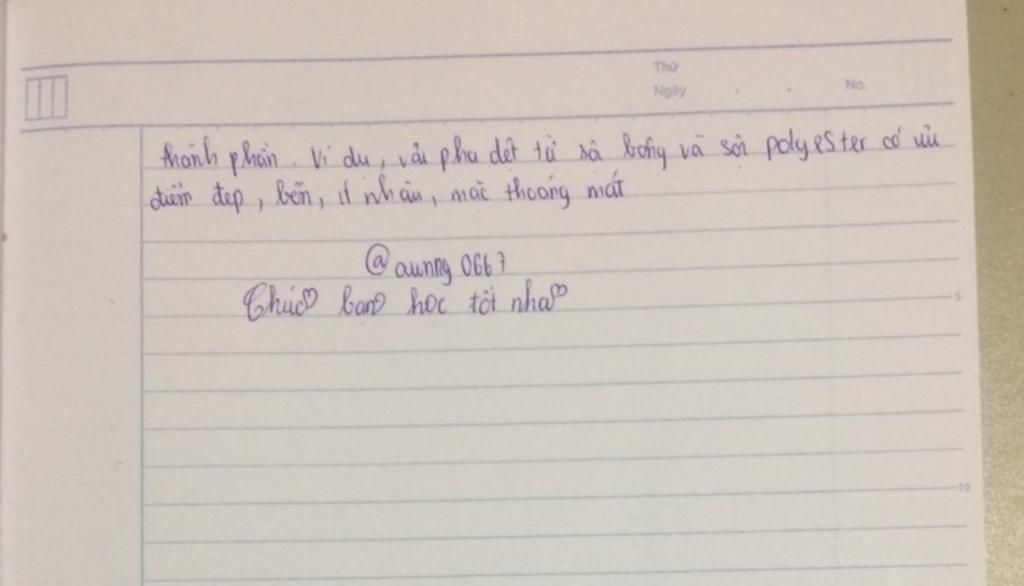 Thứ
Ngày
No.
thành phần. Ví dụ, vải pha dệt từ sợi bông và sợi polyester có ưu
điểm đẹp, bền, ít nhàu, mặc thoáng mát
@aunng0667
Chúc♡ bạn học tốt nha♡
5
10